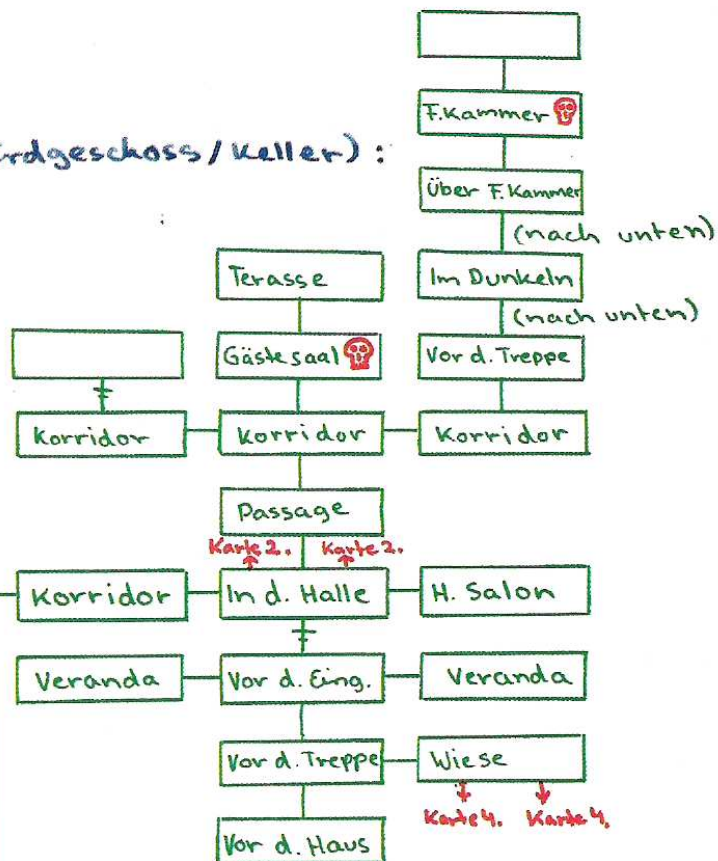 F.Kammer
rdgeschoss / Keller) :
Über F. Kammer
(nach unten)
Terasse
Im Dunkeln
(nach unten)
Gästesaal
Vor d. Treppe
Korridor
Korridor
Korridor
Passage
Karte 2.
Karte 2.
Korridor
In d. Halle
H. Salon
Veranda
Vor d. Eing.
Veranda
Vor d. Treppe
Wiese
Karte 4.
Karte 4.
Vor d. Haus